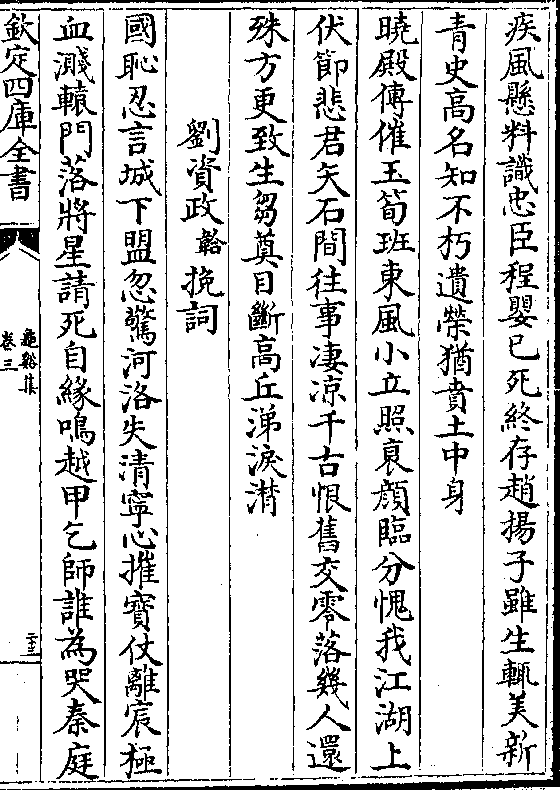 疾風懸料識忠臣程嬰已死終存趙揚子雖生輒美新
青史高名知不朽遺榮猶賁土中身
曉殿傳催玉筍班東風小立照衰顔臨分愧我江湖上
伏節悲君矢石間往事凄凉千古恨舊交零落幾人還
殊方更致生芻奠目斷高丘涕淚潸
劉資政韐挽詞
國恥忍言城下盟忽驚河洛失清寧心摧寶仗離宸極
血濺轅門落將星請死自緣鳴越甲乞師誰為哭秦庭
欽定四庫全書
龜谿集
卷三
二十三